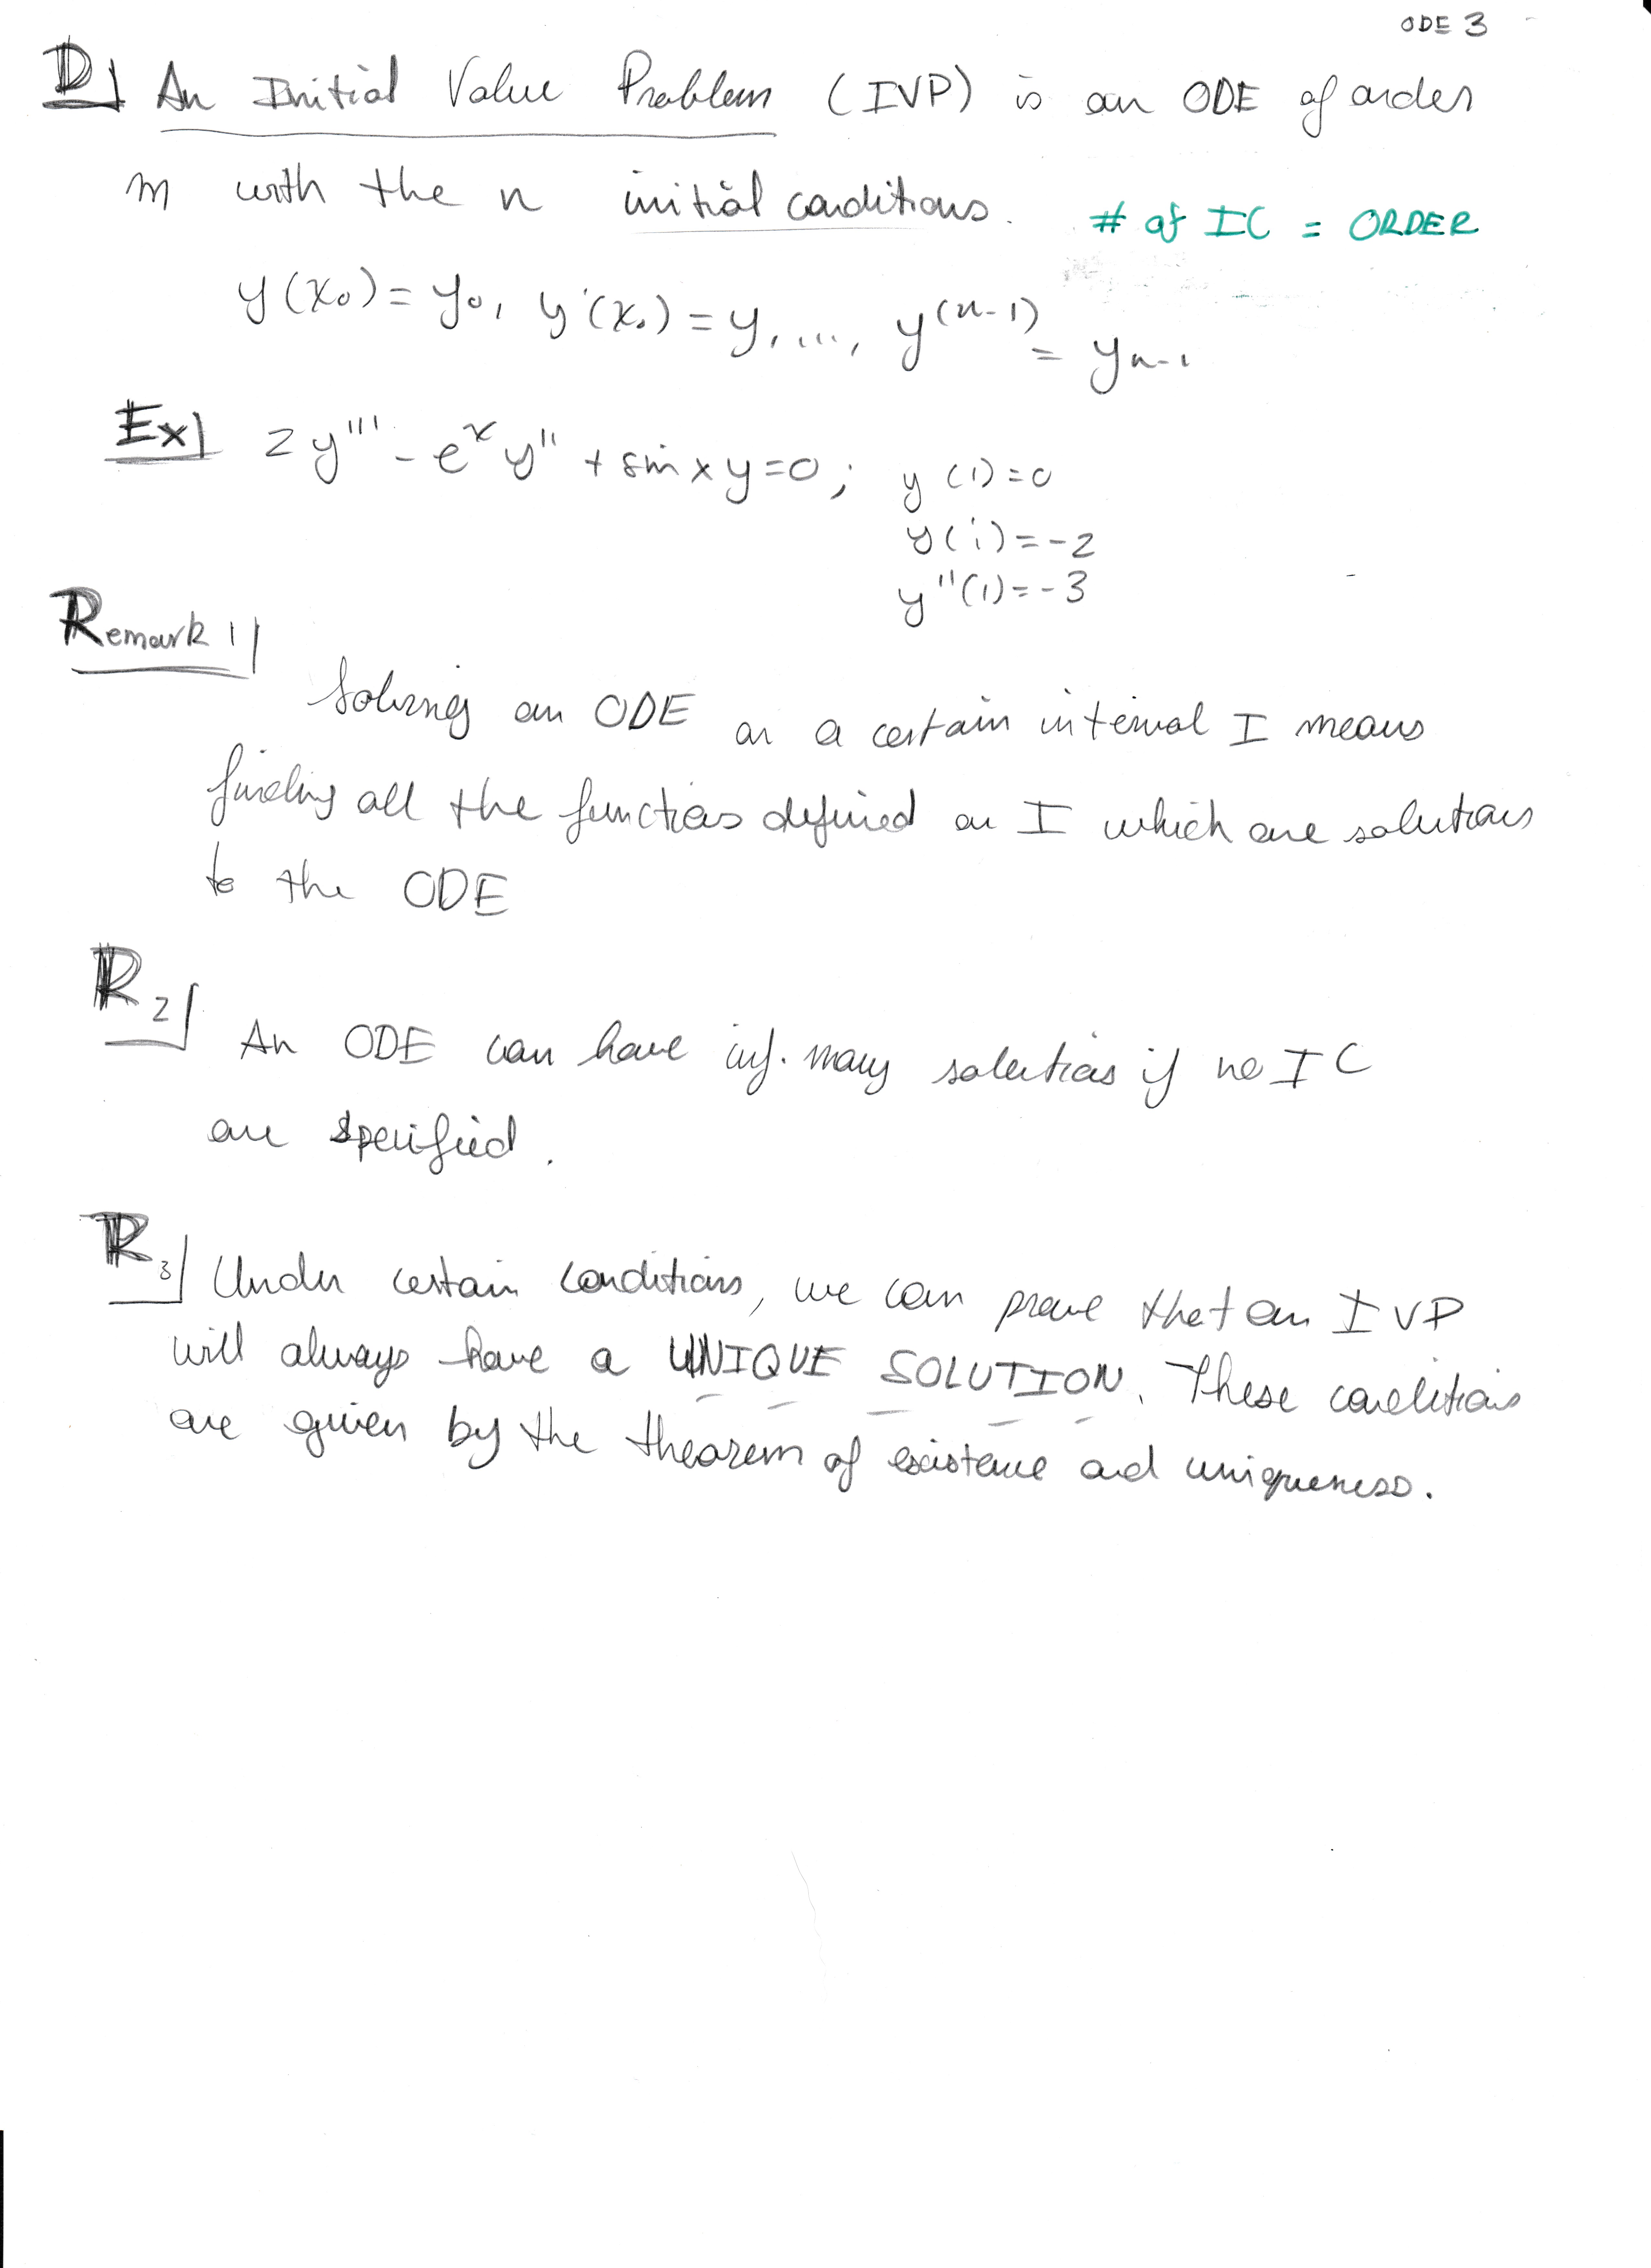 ODE 3
D| An Initial Value Problem (IVP) is an ODE of order
n with the n initial conditions. # of IC = ORDER
y(x₀) = y₀, y'(x₀) = y₁, ..., y⁽ⁿ⁻¹⁾ = yₙ₋₁
Ex| 2y''' - eˣy'' + sin x y = 0; y(1) = 0
y'(1) = -2
y''(1) = -3
Remark 1|
Solving an ODE on a certain interval I means
finding all the functions defined on I which are solutions
to the ODE
R2| An ODE can have inf. many solutions if no IC
are specified.
R3| Under certain conditions, we can prove that an IVP
will always have a UNIQUE SOLUTION. These conditions
are given by the theorem of existence and uniqueness.